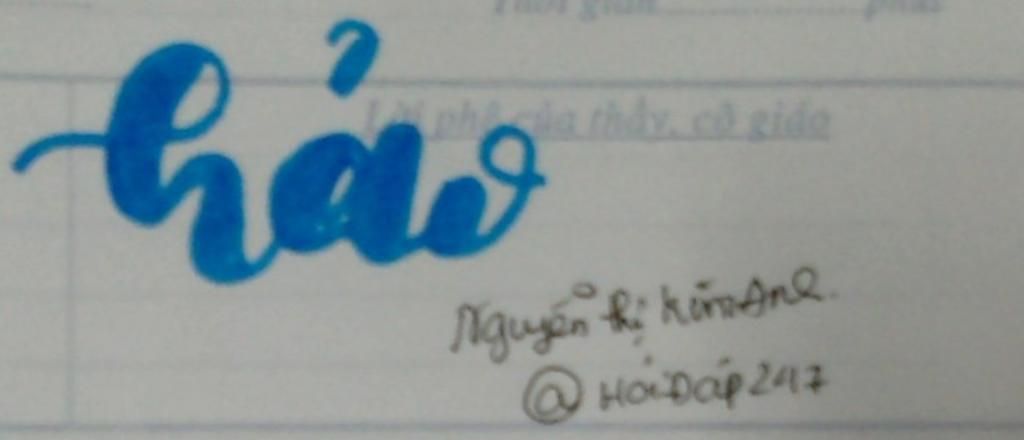 Thời gian..............phút
Lời phê của thầy, cô giáo
hảo
Nguyễn thị Kim Anh.
@ HỏiĐáp247